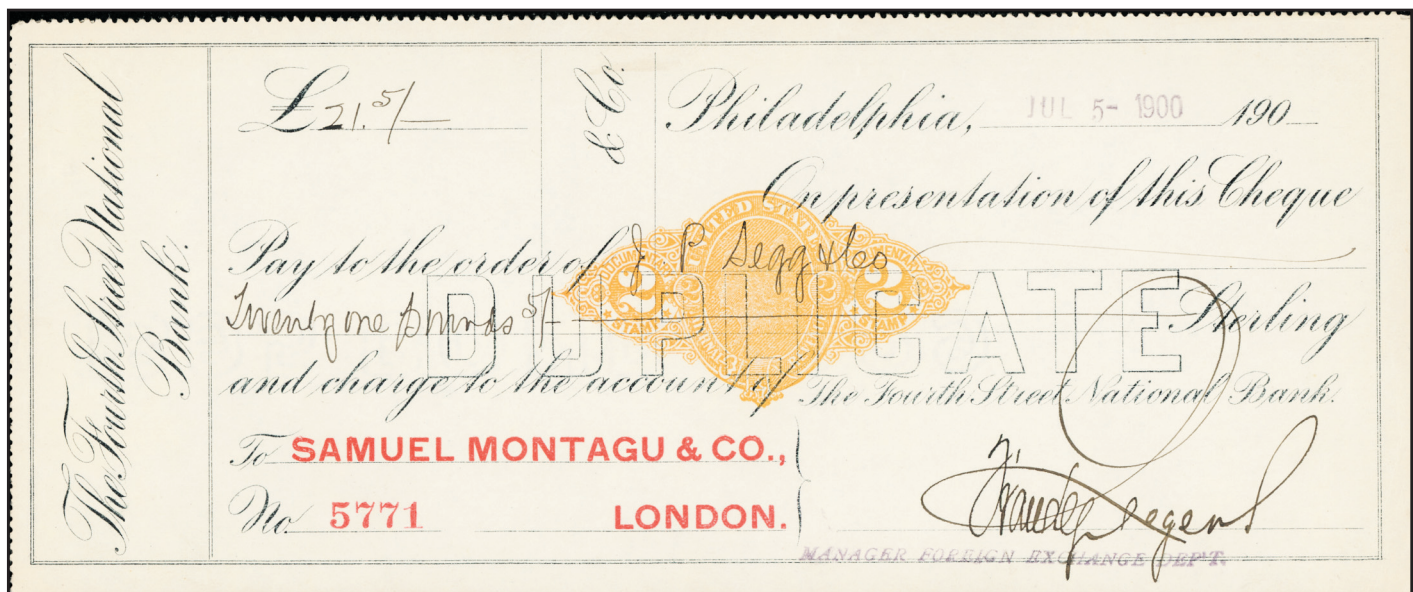 The Fourth Street National
Bank.
£21.5/-
& Co.
Philadelphia, JUL 5- 1900 190
On presentation of this Cheque
Pay to the order of J. P. Segg & Co
Twenty one pounds 5/- Sterling
DUPLICATE
UNITED STATES
DOCUMENTARY
2 2
STAMP STAMP
INTERNAL REVENUE
and charge to the account of The Fourth Street National Bank.
To SAMUEL MONTAGU & CO.,
No. 5771 LONDON.
MANAGER FOREIGN EXCHANGE DEP'T.